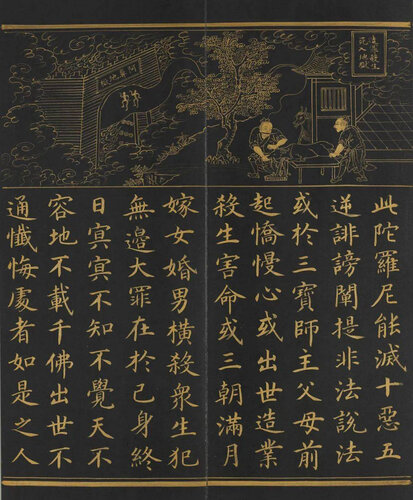 殺生
死入地獄
阿鼻地獄
此陀羅尼能滅十惡五
逆誹謗闡提非法說法
或於三寶師主父母前
起憍慢心或出世造業
殺生害命或三朝滿月
嫁女婚男橫殺衆生犯
無邊大罪在於己身終
日冥冥不知不覺天不
容地不載千佛出世不
通懺悔處者如是之人